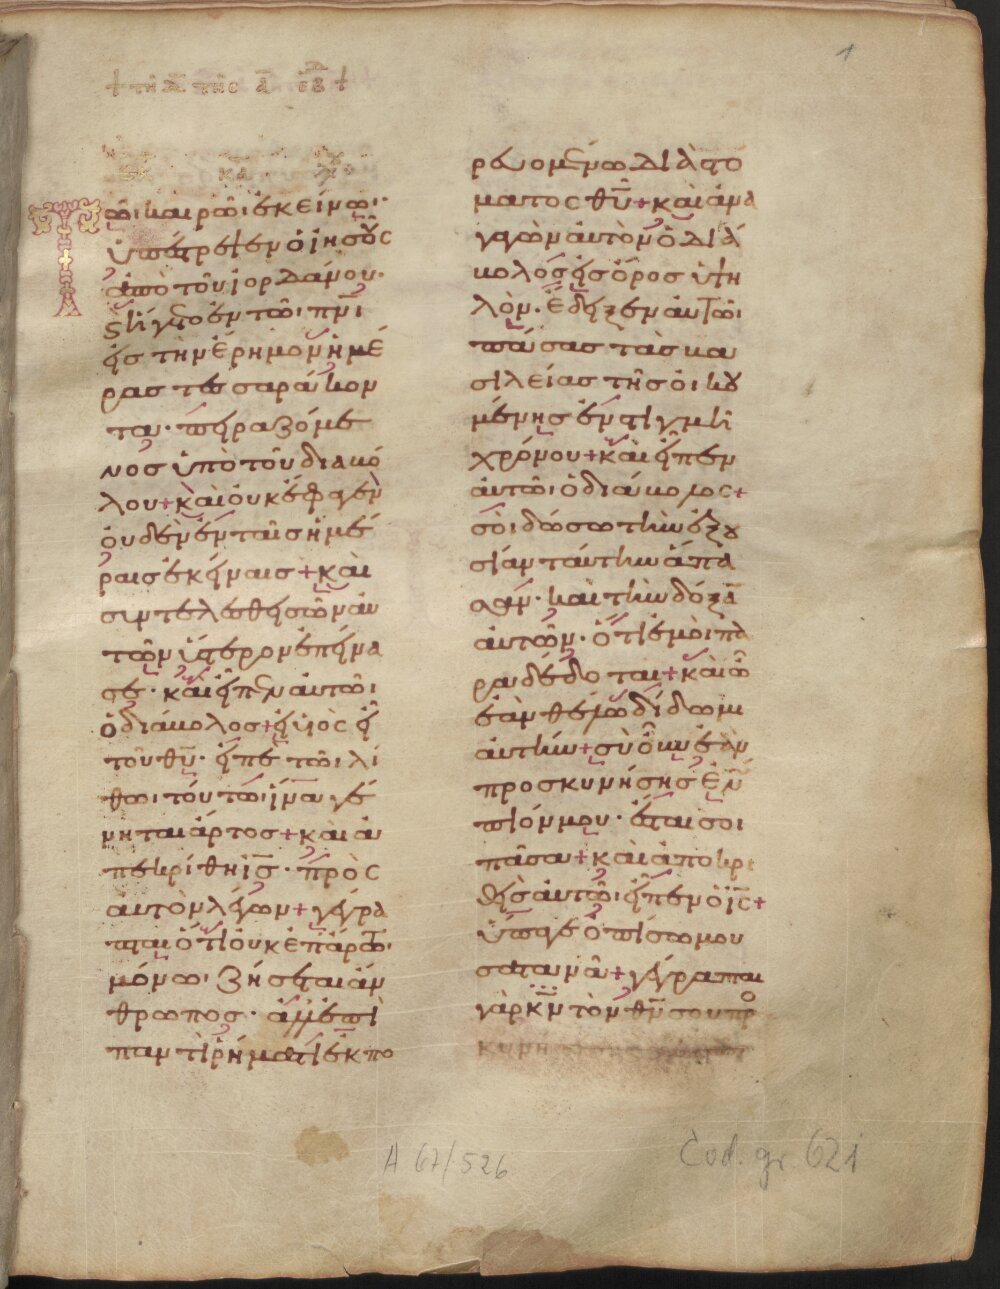 1
+ τῆ Δ τῆς ᾱ εβδ +
ἐκ κατ
Τῶι καιρῶι ἐκείνωι·
ὑπέστρεψεν ὁ ἰησοῦς
ἀπὸ τοῦ ἰορδάνου·
καὶ ἤγετο ἐν τῶι πνι
εἰς τὴν ἔρημον ἡμέ
ρας τεσσαράκον
τα· πειραζόμε
νος ὑπὸ τοῦ διαβό
λου + καὶ οὐκ ἔφαγεν
οὐδὲν ἐν ταῖς ἡμέ
ραις ἐκείναις + καὶ
συντελεσθεισῶν αὐ
τῶν ὕστερον ἐπείνα
σε· καὶ εἶπεν αὐτῶι
ὁ διάβολος + εἰ υἱὸς εἶ
τοῦ θῦ· εἰπὲ τῶι λί
θωι τούτωι ἵνα γέ
νηται ἄρτος + καὶ ἀ
πεκρίθη ις̄ · πρὸς
αὐτὸν λέγων + γέγρα
πται ὅτι οὐκ ἐπ' ἄρτωι
μόνωι ζήσεται ἄν
θρωπος· ἀλλ' ἐπὶ
παντὶ ῥήματι ἐκπο
ρευομένωι διὰ στό
ματος θῦ + καὶ ἀνα
γαγὼν αὐτὸν ὁ διά
βολος εἰς ὄρος ὑψη
λὸν· ἔδειξεν αὐτῶι
πάσας τὰς βα
σιλείας τῆς οἰκου
μένης ἐν στιγμῆ
χρόνου + καὶ εἶπεν
αὐτῶι ὁ διάβολος +
σοὶ δώσω τὴν ἐξου
σίαν ταύτην ἅπα
σαν· καὶ τὴν δόξαν
αὐτῶν· ὅτι ἐμοὶ πα
ραδέδοται + καὶ ὧ
ἐὰν θέλω δίδωμι
αὐτήν + σὺ οὖν ἐὰν
προσκυνήσης ἐνώ
πιόν μου· ἔσται σοι
πᾶσα + καὶ ἀποκρι
θεὶς αὐτῶ· εἶπεν ὁ ις̄ +
ὕπαγε ὀπίσω μου
σατανᾶ + γέγραπται
γὰρ κν̄ τὸν θν̄ σου προ
κυνη
A 67/526
Cod. gr. 621